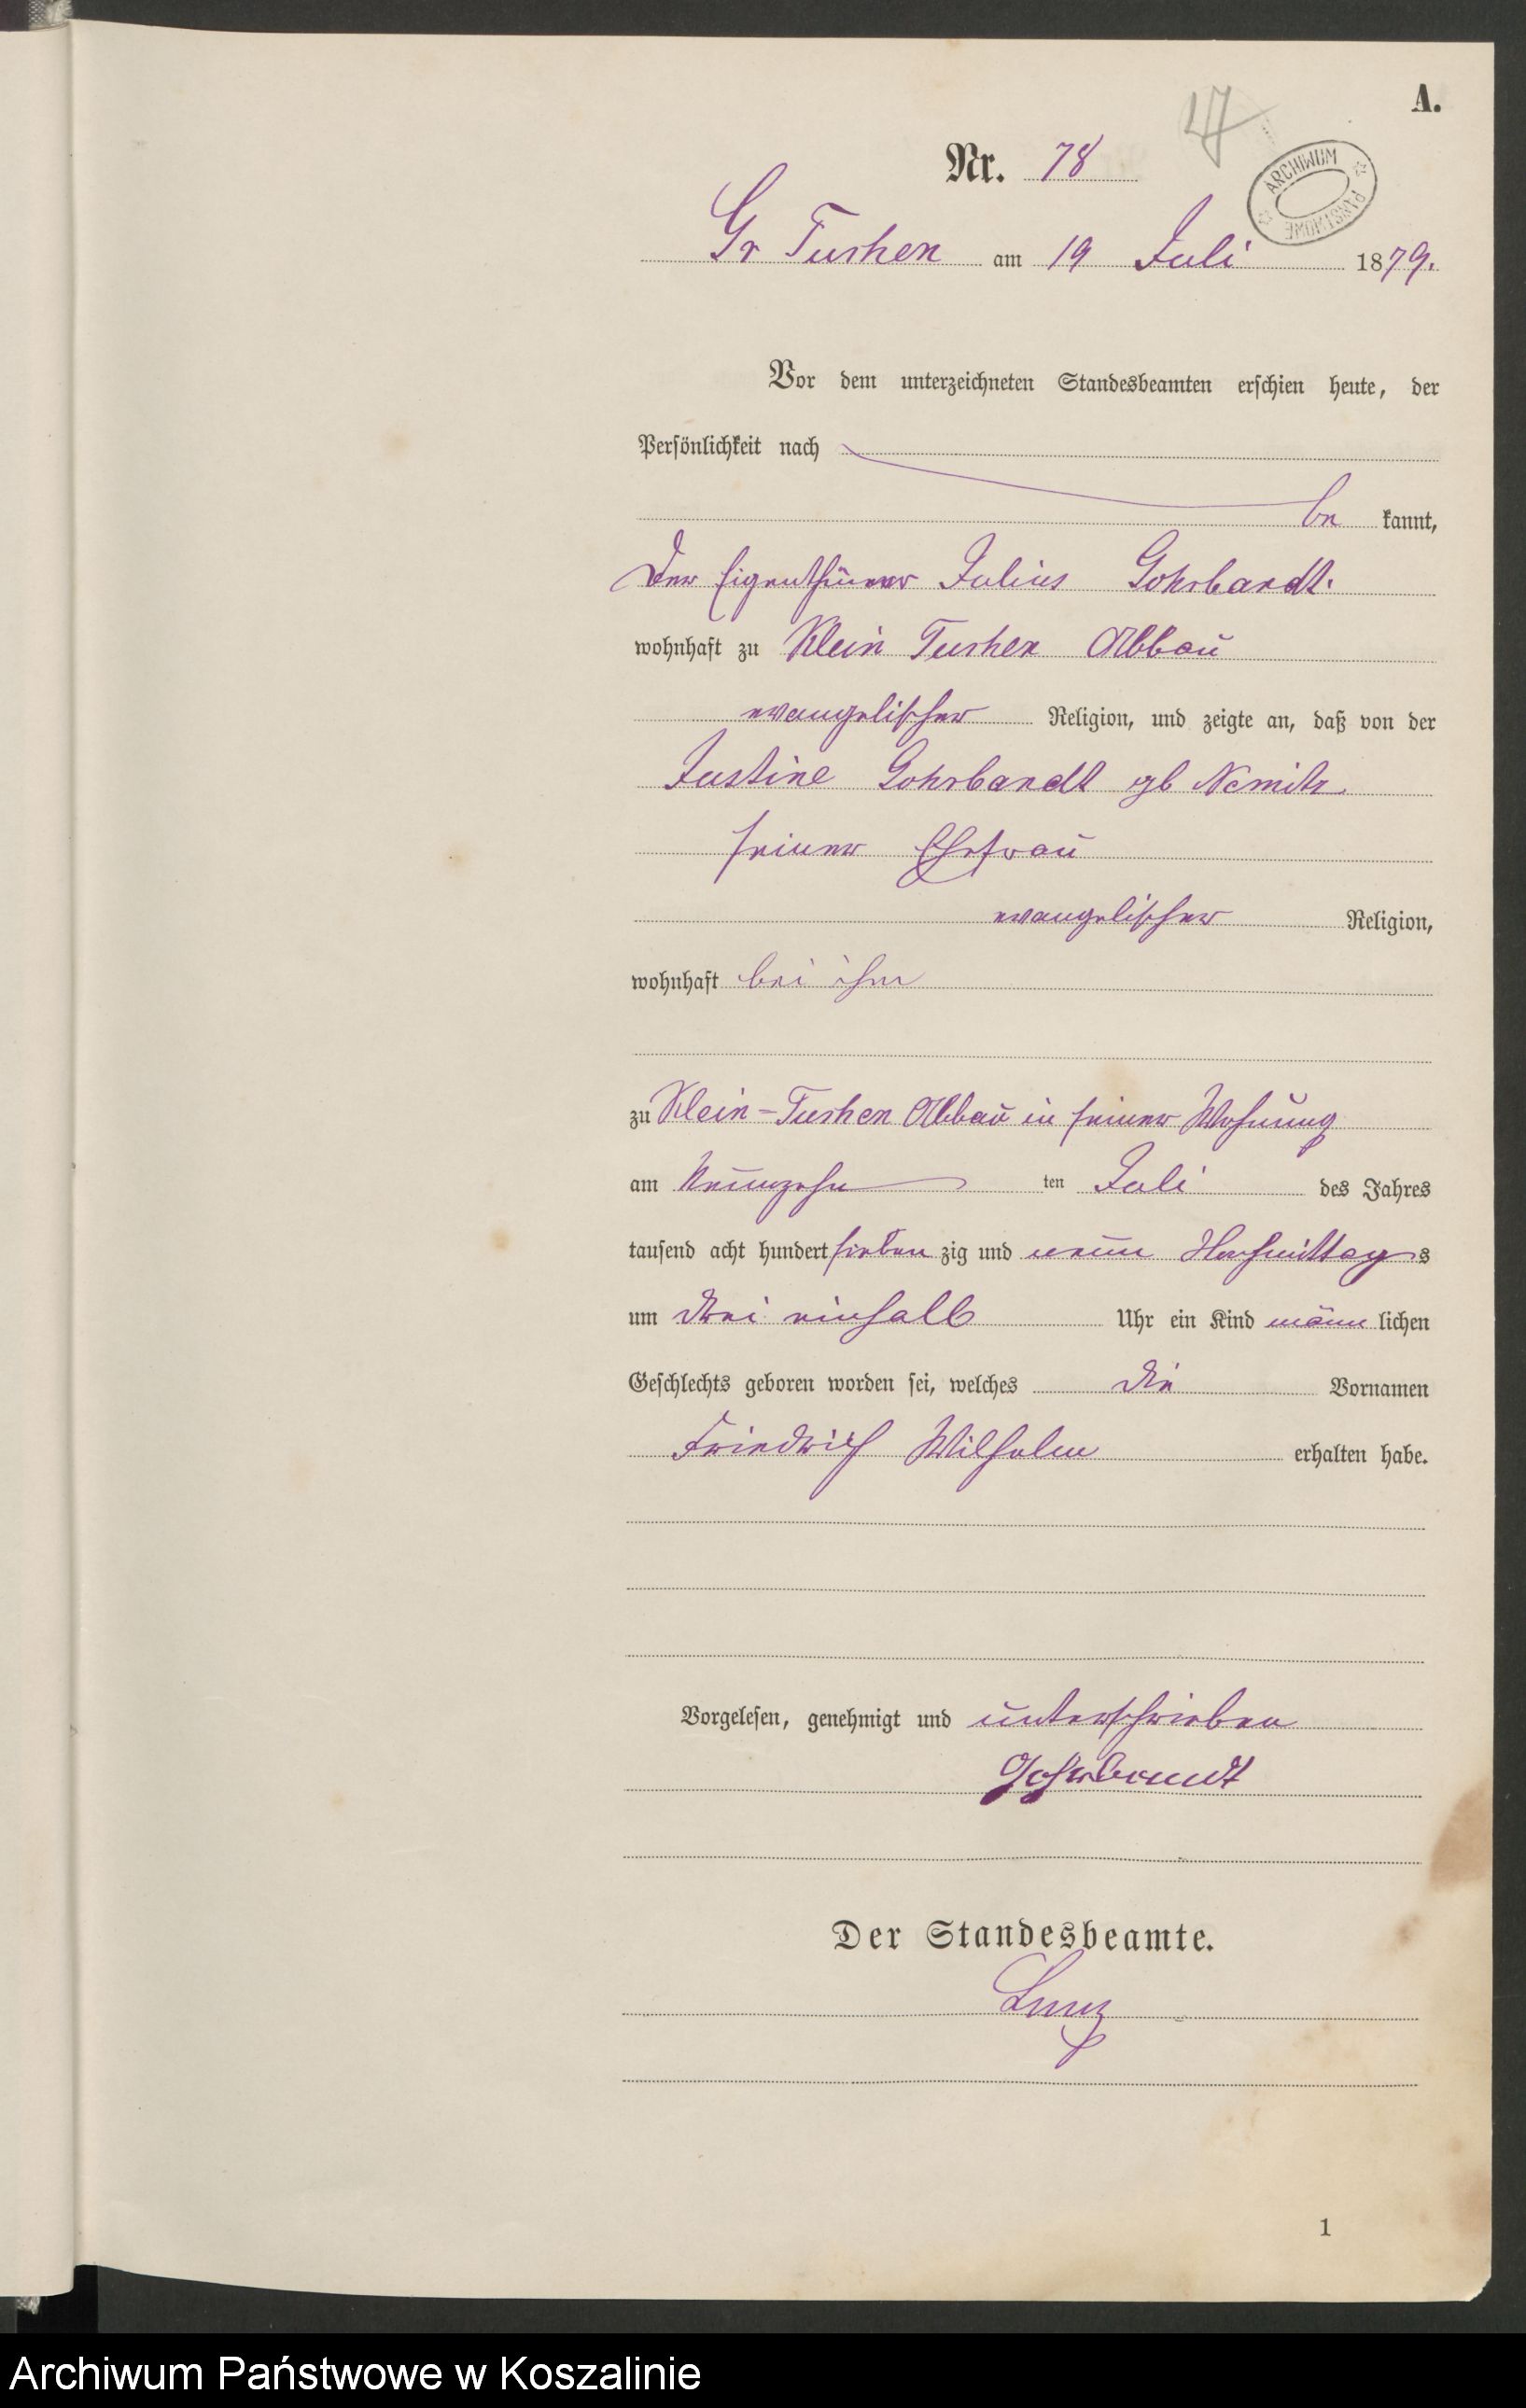 A.
47
Nr. 78
ARCHIWUM PAŃSTWOWE
Gr Tuchen am 19 Juli 1879.
Vor dem unterzeichneten Standesbeamten erschien heute, der
Persönlichkeit nach
be kannt,
Der Eigenthümer Julius Gohrbandt.
wohnhaft zu Klein Tuchen Abbau
evangelischer Religion, und zeigte an, daß von der
Justine Gohrbandt gb Nemitz
seiner Ehefrau
evangelischer Religion,
wohnhaft bei ihm
zu Klein-Tuchen Abbau in seiner Wohnung
am Neunzehn ten Juli des Jahres
tausend acht hundert sieben zig und neun Nachmittag s
um drei einhalb Uhr ein Kind männ lichen
Geschlechts geboren worden sei, welches die Vornamen
Friedrich Wilhelm erhalten habe.
Vorgelesen, genehmigt und unterschrieben
Gohrbandt
Der Standesbeamte.
1
Archiwum Państwowe w Koszalinie